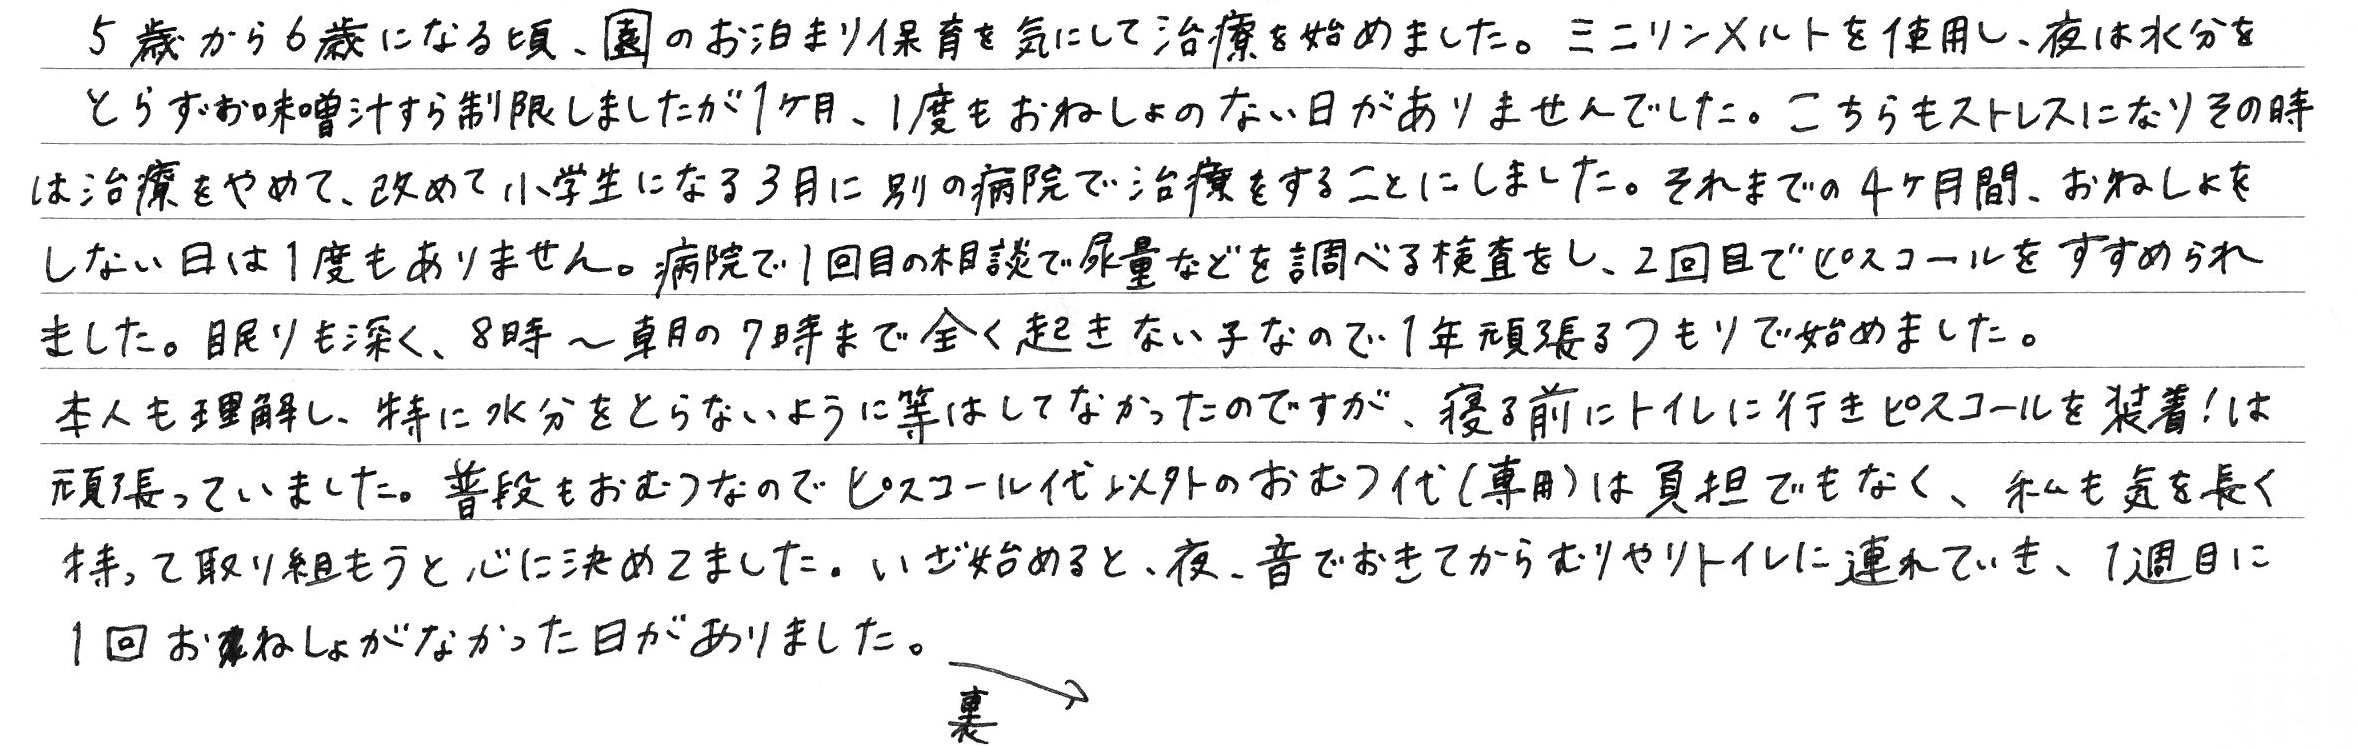 5歳から6歳になる頃、園のお泊まり保育を気にして治療を始めました。ミニリンメルトを使用し、夜は水分を
とらずお味噌汁すら制限しましたが1ケ月、1度もおねしょのない日がありませんでした。こちらもストレスになりその時
は治療をやめて、改めて小学生になる3月に別の病院で治療をすることにしました。それまでの4ケ月間、おねしょを
しない日は1度もありません。病院で1回目の相談で尿量などを調べる検査をし、2回目でピスコールをすすめられ
ました。眠りも深く、8時〜朝の7時まで全く起きない子なので1年頑張るつもりで始めました。
本人も理解し、特に水分をとらないように等はしてなかったのですが、寝る前にトイレに行きピスコールを装着!は
頑張っていました。普段もおむつなのでピスコール代以外のおむつ代(専用)は負担でもなく、私も気を長く
持って取り組もうと心に決めてました。いざ始めると、夜、音でおきてからむりやりトイレに連れていき、1週目に
1回おねしょがなかった日がありました。
裏